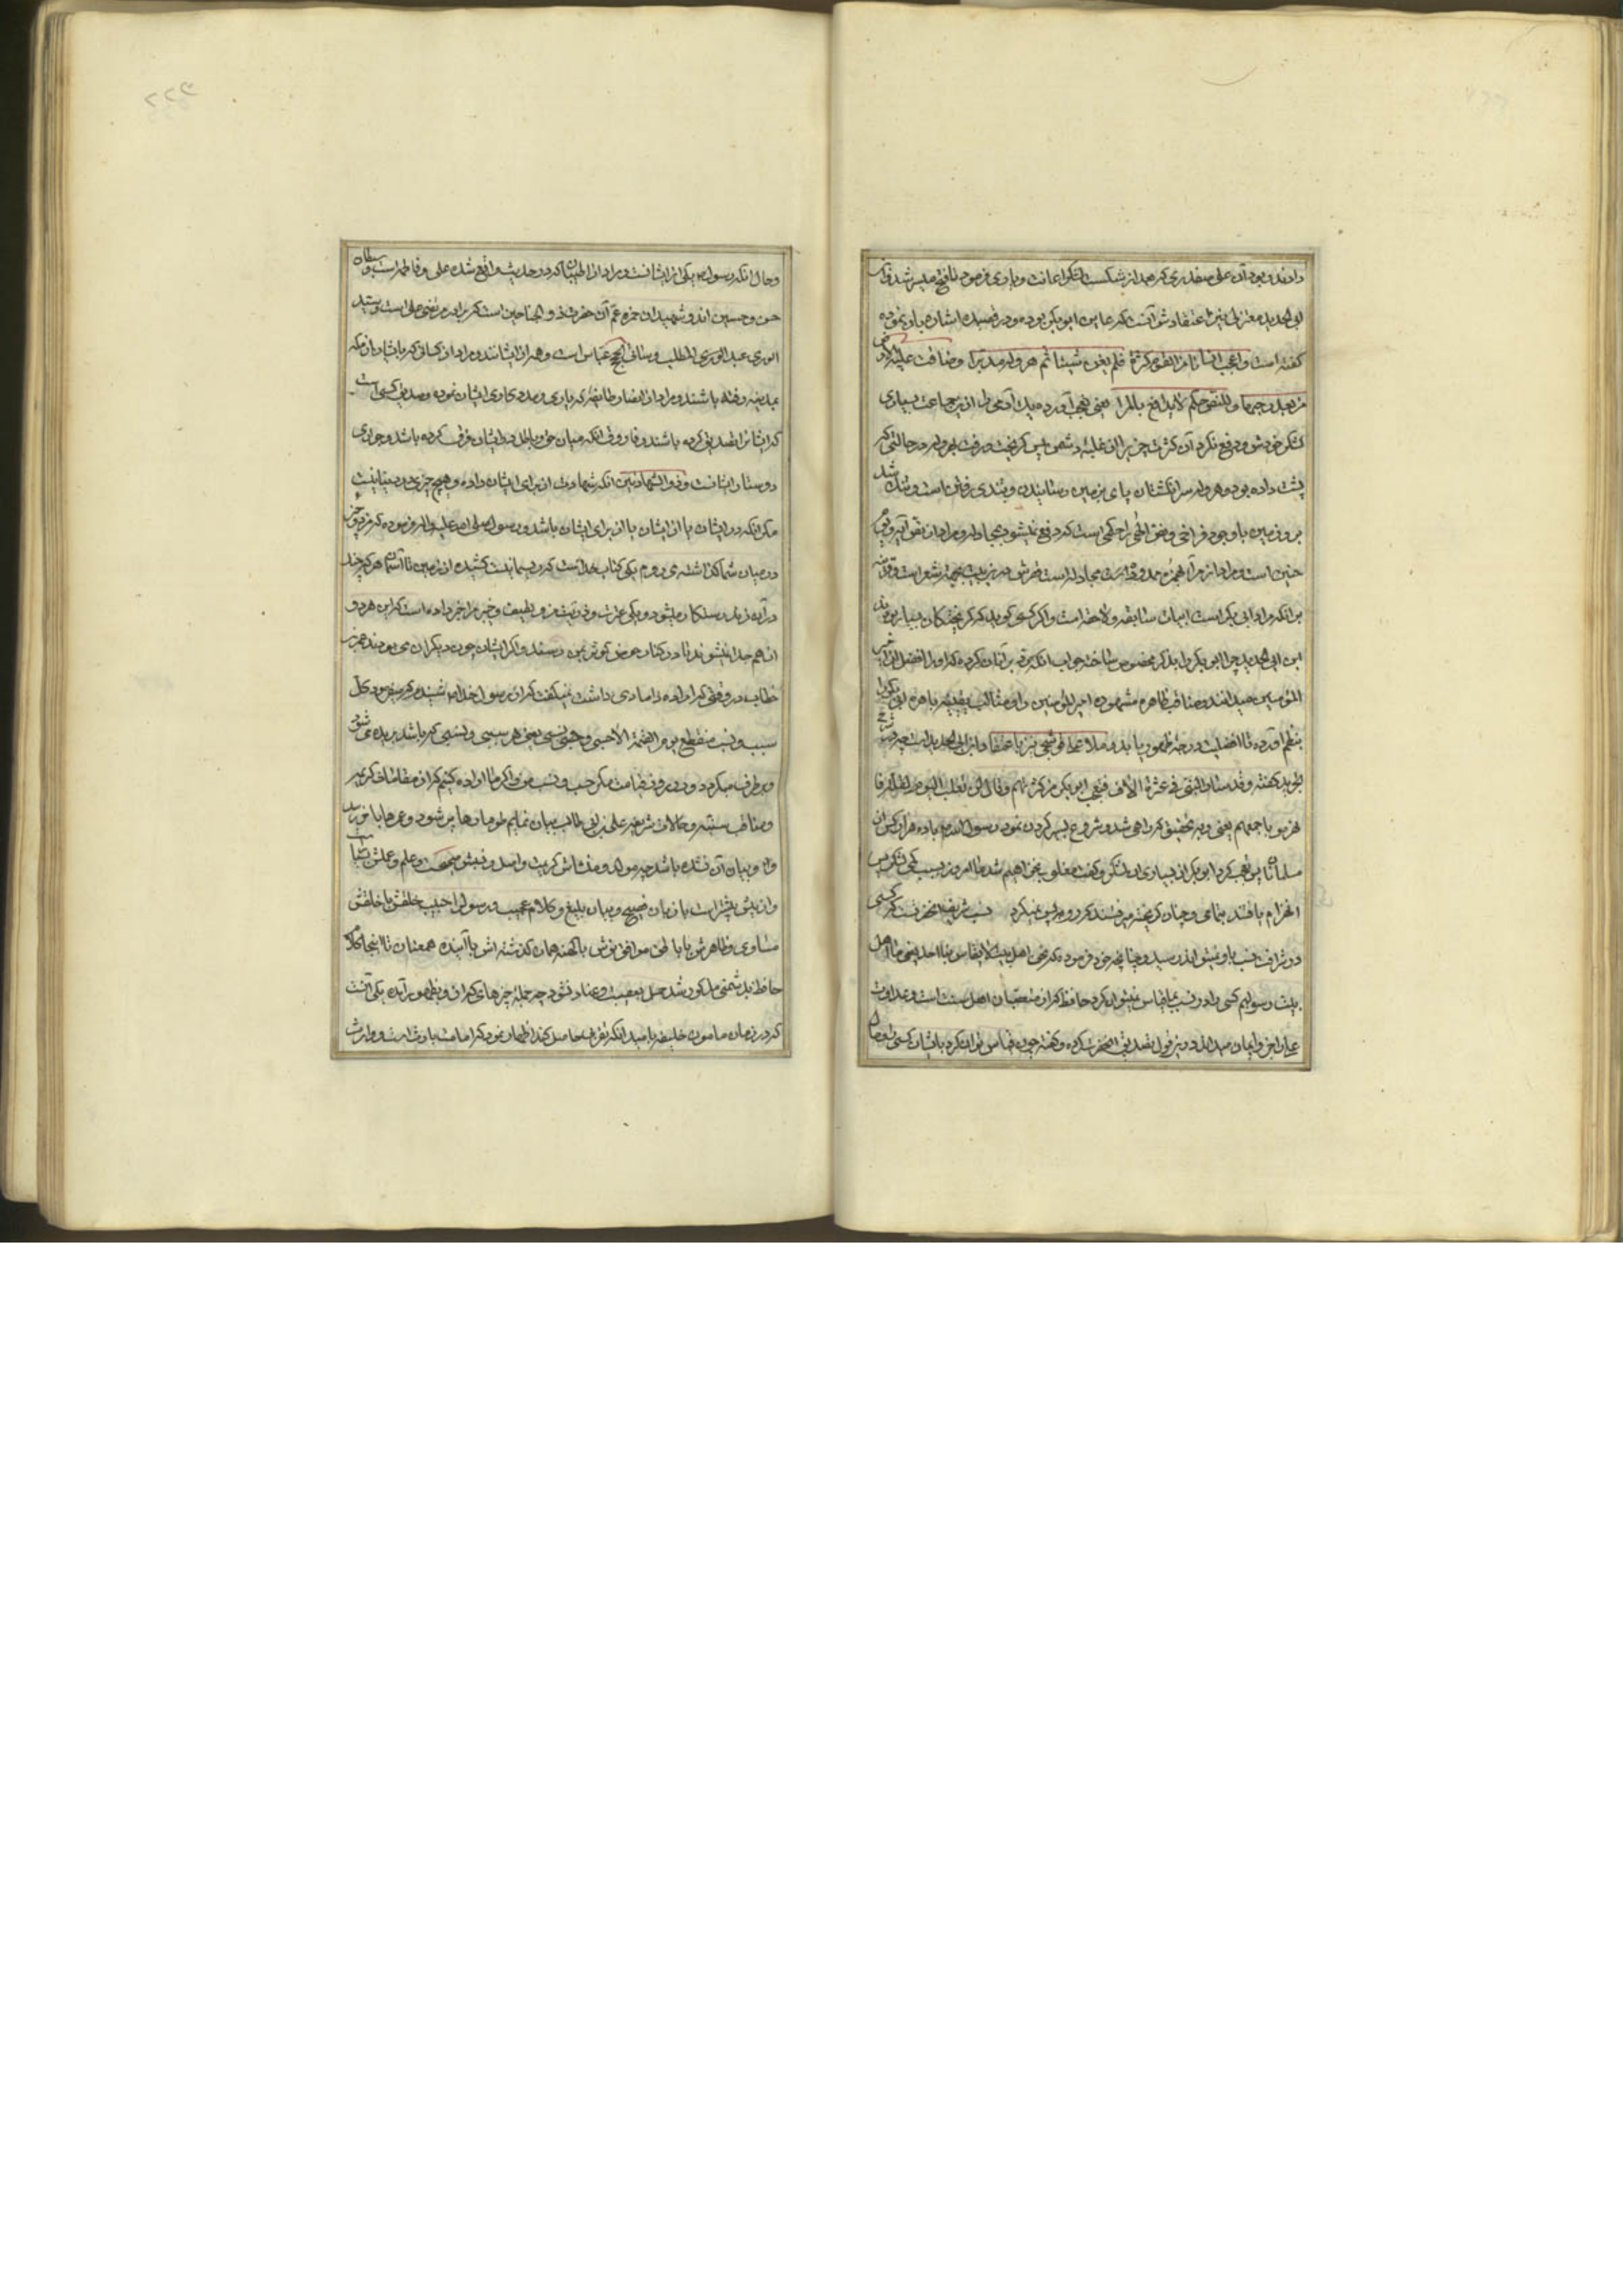 دادند و بود آن علی صفدری که بعد از شکست لشکر اعانت و یاوری فرمود تا فتح میسر شد و ابن
ابی الحدید معتزلی نیز اعتقادش آنست که عاین ابو بکر بوده و در قصیده اشاره باو نموده
گفته است و اعجب انسانا من القوم کثرة فلم یغن شیئا ثم هرول مدبرا و ضاقت علیه الارض
من بعد رحبها و للنص حکم لا یدافع بالمرا یعنی بعجب آورد یک آدمی را از این جماعت بسیاری
لشکر خودش و دفع نکرد آن کثرت چیزی را از غلبه دشمن پس گریخت و رفت بهروله در حالتی که
پشت داده بود و هروله سر انگشتان پای بر زمین رسانیدن و بتندی رفتن است و تنک شد
برو زمین با وجود فراخی و نص الهی را حکمی است که دفع نمیشود بمجادله و مراد از نص آیه ویوم
حنین است و مراد از مرا همزه ممدوده است مجادله است قصرش در بیت بجهة شعر است و قرینه
بر آنکه مراد ابی بکر است ابیات سابقه و لاحقه است و اگر کسی گوید که گریختگان بسیار بودند
ابن ابی الحدید چرا ابو بکر را بذکر مخصوص ساخته جواب آنکه
المؤمنین میدانند و مناقب ظاهره مشهوره امیر المؤمنین را و مثالب
بنظم آورده تا افضلیت و رجحان ظهور یابد و ملا علی قوشجی نیز با اعتقاد ابن ابی الحدید است چه در شرح
تجرید گفته و قد سار النبی فی عشرة الاف فتعجب ابو بکر من کثرتهم و قال لن نغلب الیوم لقلة فا
نهزموا باجمعهم یعنی و به تحقیق که راهی شد و شروع بسیر کردن نمود رسول الله با ده هزار کس از
مسلمانان پس تعجب کرد ابو بکر از بسیاری آن لشکر و گفت مغلوب نخواهیم شد ما امروز بسبب کمی لشکر پس
انهزام یافتند بتمامی و چنان گریخته میرفتند که رو به پس نمیکرد نسب شریف آنحضرتست که کسی
در شرافت نسب باو نمیتواند رسید و چنانچه خود فرموده که نحن اهل بیت لا یقاس بنا احد یعنی ما اهل
بیت رسولیم کسی را در نسب بما قیاس نمیتوان کرد حافظ که از متعصبان اهل سنت است و عداوت
باین قول تصدیق آنحضرت کرده و گفته چون قیاس توان کرد بایشان کسی را
و حال آنکه رسول یکی از ایشانست و مراد از اطیبان که در حدیث واقع شده علی و فاطمه است و سبطان
حسن و حسین اند و شهیدان حمزه عم آن حضرت و ذو الجناحین است که برادر مرتضی علی است و سید
الوری عبد المطلب و ساقی الحجیج عباس است و همه از ایشانند و مراد از کسانی که با ایشان از مکه
بمدینه رفته باشند و مراد از انصار طایفه که یاری و مددکاری ایشان نموده و صدیق کسی است
که ایشانرا تصدیق کرده باشند و فاروق آنکه میان حق و باطل ایشان فرق کرده باشد و حواری
دوستار ایشانست و ذو الشهادتین آنکه شهادت از برای ایشان داده و هیچ چیزی در دنیا نیست
مگر آنکه در ایشان یا از ایشان یا از برای ایشان باشد و رسول صلی الله علیه و اله فرموده که من دو چیز
در میان شما گذاشته می روم یکی کتاب خداست که ریسمانیست کشیده از زمین تا آسمان هر که چنگ
در آن زند رستگار میشود و یکی عترت و ذریت من و لطیف و خبیر مرا خبر داده است که این هر دو
از هم جدا نمیشوند تا در کنار حوض کوثر بمن رسند و اگر ایشان چون دیگران می بودند عمر بن
خطاب در وقتی که اراده دامادی داشت نمیگفت که از رسول خدا شنیدم که میفرمود کل
سبب و نسب منقطع یوم القیمة الا حسبی و نسبی یعنی هر سببی و نسبی که باشد بریده می شود
و برطرف میگردد در روز قیامت مگر حسب و نسب من و اگر ما اراده کنیم که از مقامات کریمه
و مناقب سنیه و حالات شریفه علی بن ابی طالب بیان نمایم طومارها پر شود و عمرها بآخر رسد
و از بیان آن نشده باشد چه مولد و منشاش کریمست و اصل و نسبش صحیحست و علم و عملش بسیار
و زبان فصیح و بیان بلیغ و کلام عجیب و رسول را حبیب خلقش با خلقش
مساوی و ظاهرش با باطن موافق نوش با کهنه همان گذشته اش با آینده همعنان تا اینجا کلام
حافظ بد شمنی مذکور شد حمل بعصبیت و عناد نشود چه جمله چیزهای که از او بظهور آمده یکی آنست
که در زمان مامون خلیفه بامید آنکه تقربی حاصل کند اظهار نمود که امامت بارث است و وارث